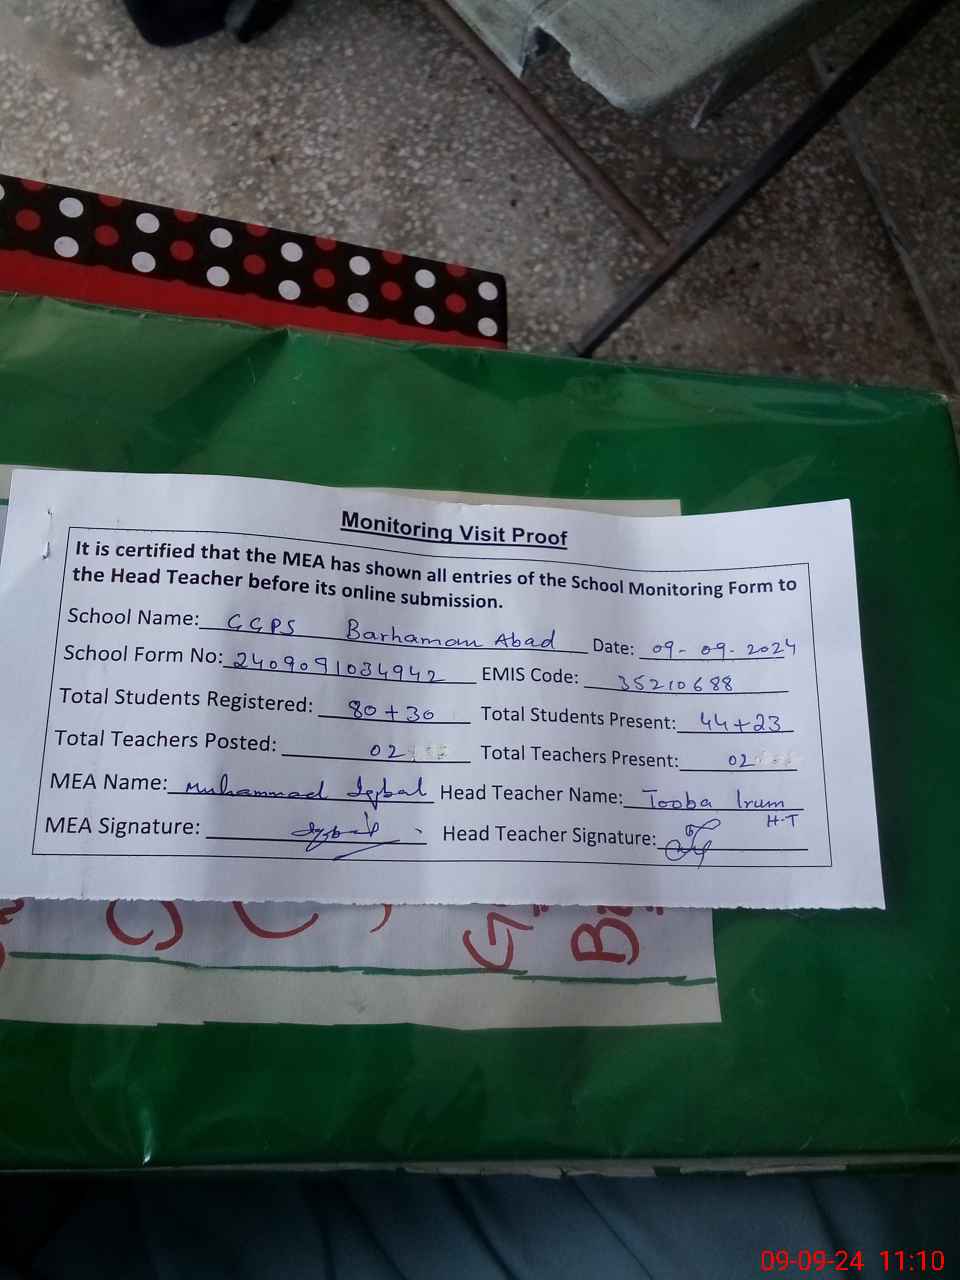 Monitoring Visit Proof
It is certified that the MEA has shown all entries of the School Monitoring Form to
the Head Teacher before its online submission.
School Name: GGPS Barhaman Abad Date: 09-09-2024
School Form No: 2409091034942 EMIS Code: 35210688
Total Students Registered: 80+30 Total Students Present: 44+23
Total Teachers Posted: 02 Total Teachers Present: 02
MEA Name: Muhammad Iqbal Head Teacher Name: Tooba Irum
H-T
MEA Signature: Iqbal Head Teacher Signature:
09-09-24 11:10